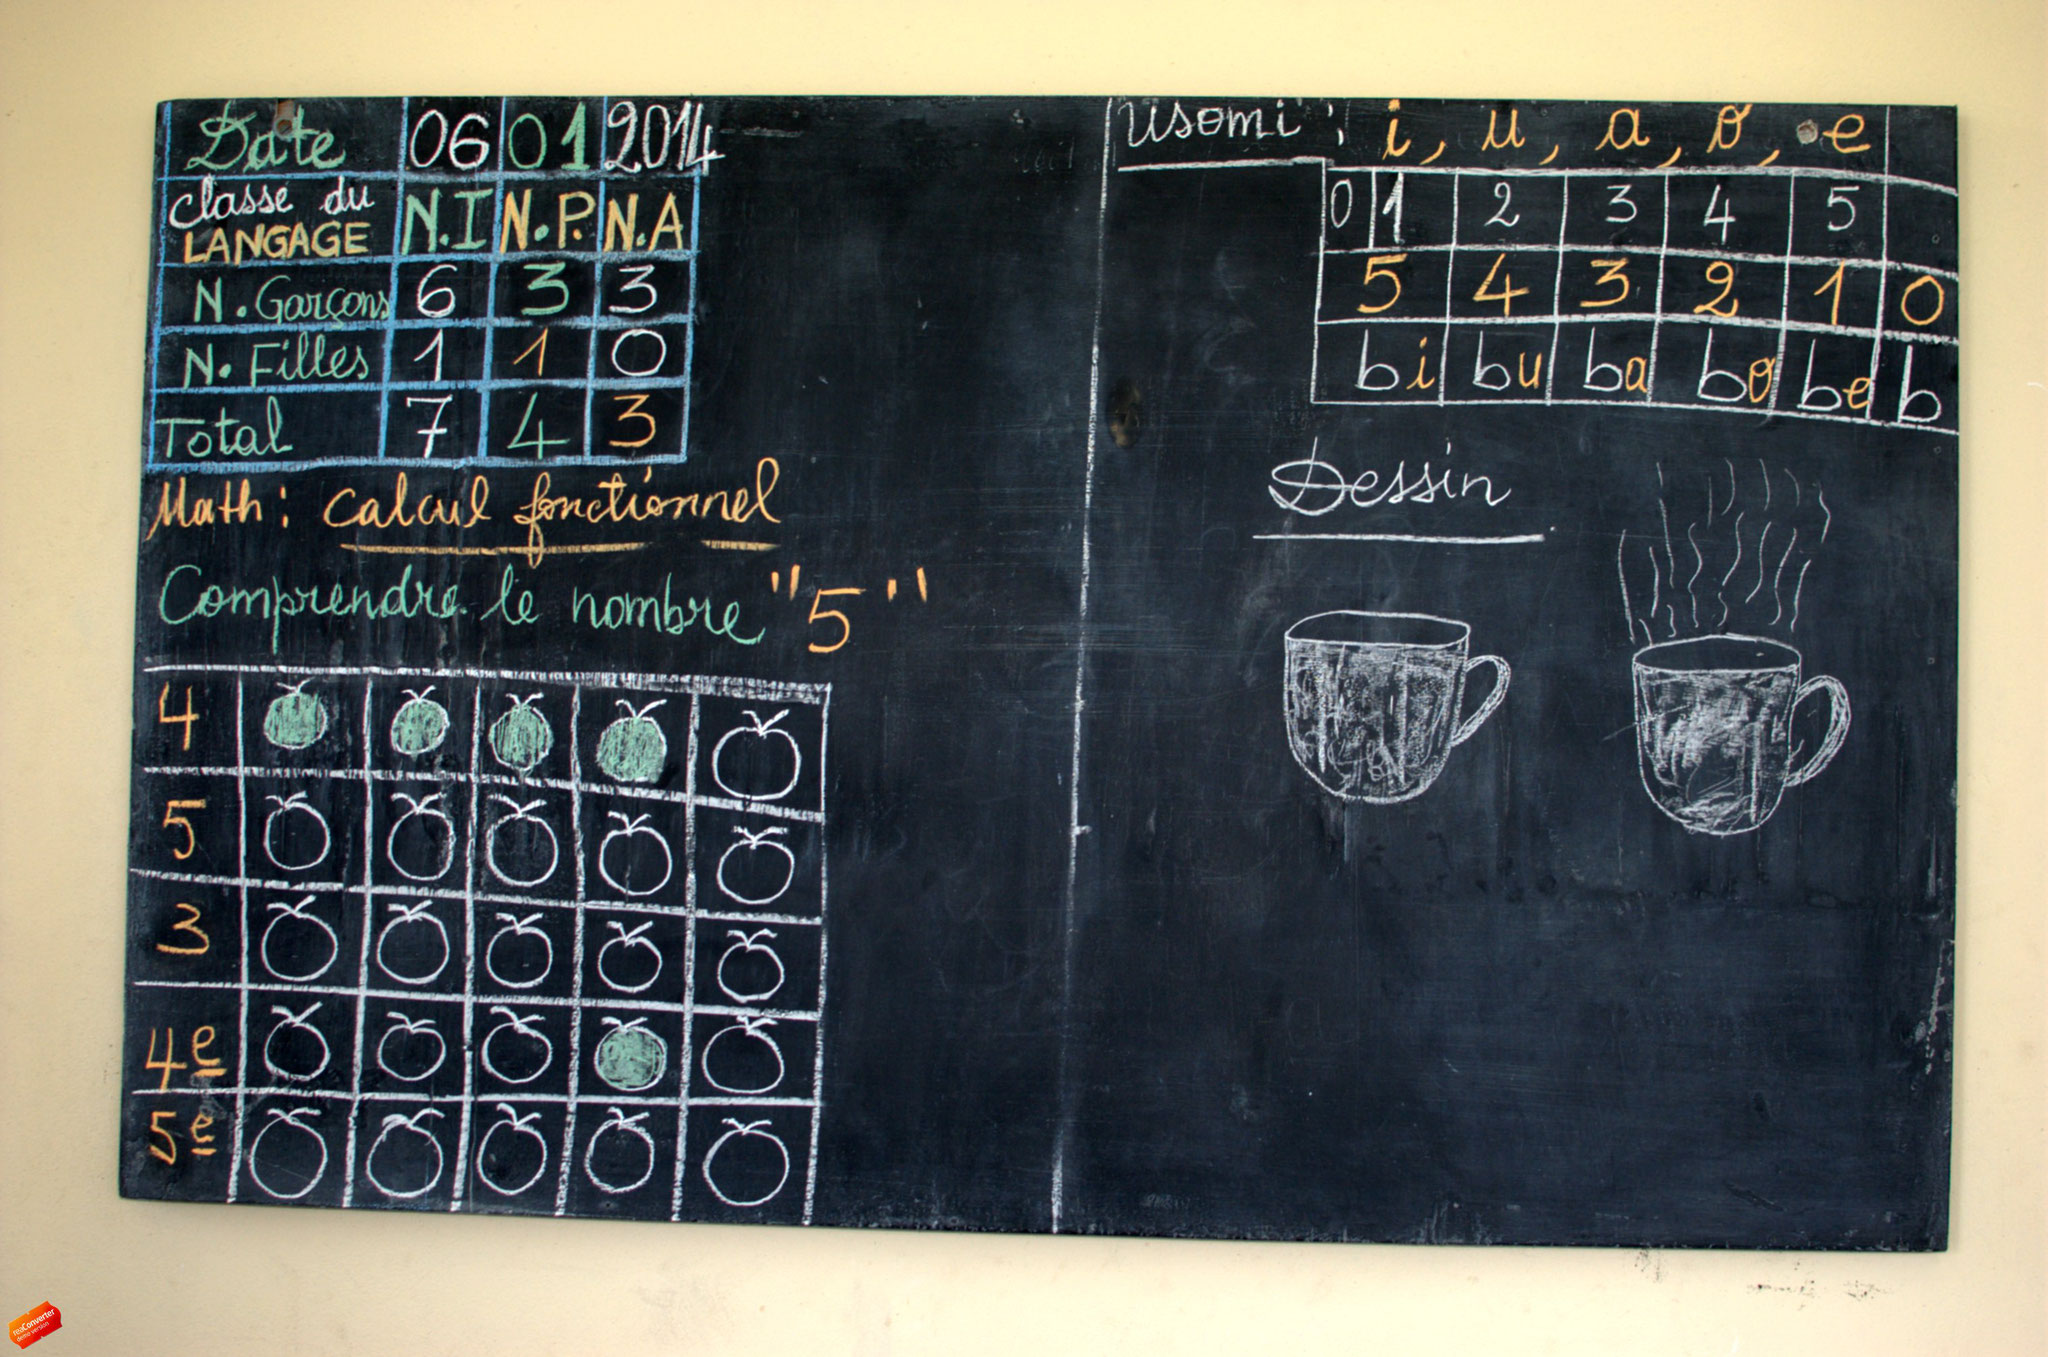 Date 06 01 2014
Classe du LANGAGE N.I N.P. N.A
N. Garçons 6 3 3
N. Filles 1 1 0
Total 7 4 3
Math : calcul fonctionnel
Comprendre le nombre "5"
4
5
3
4e
5e
usomi : i, u, a, o, e
0 1 2 3 4 5
5 4 3 2 1 0
bi bu ba bo be b
Dessin
reaConverter
demo version